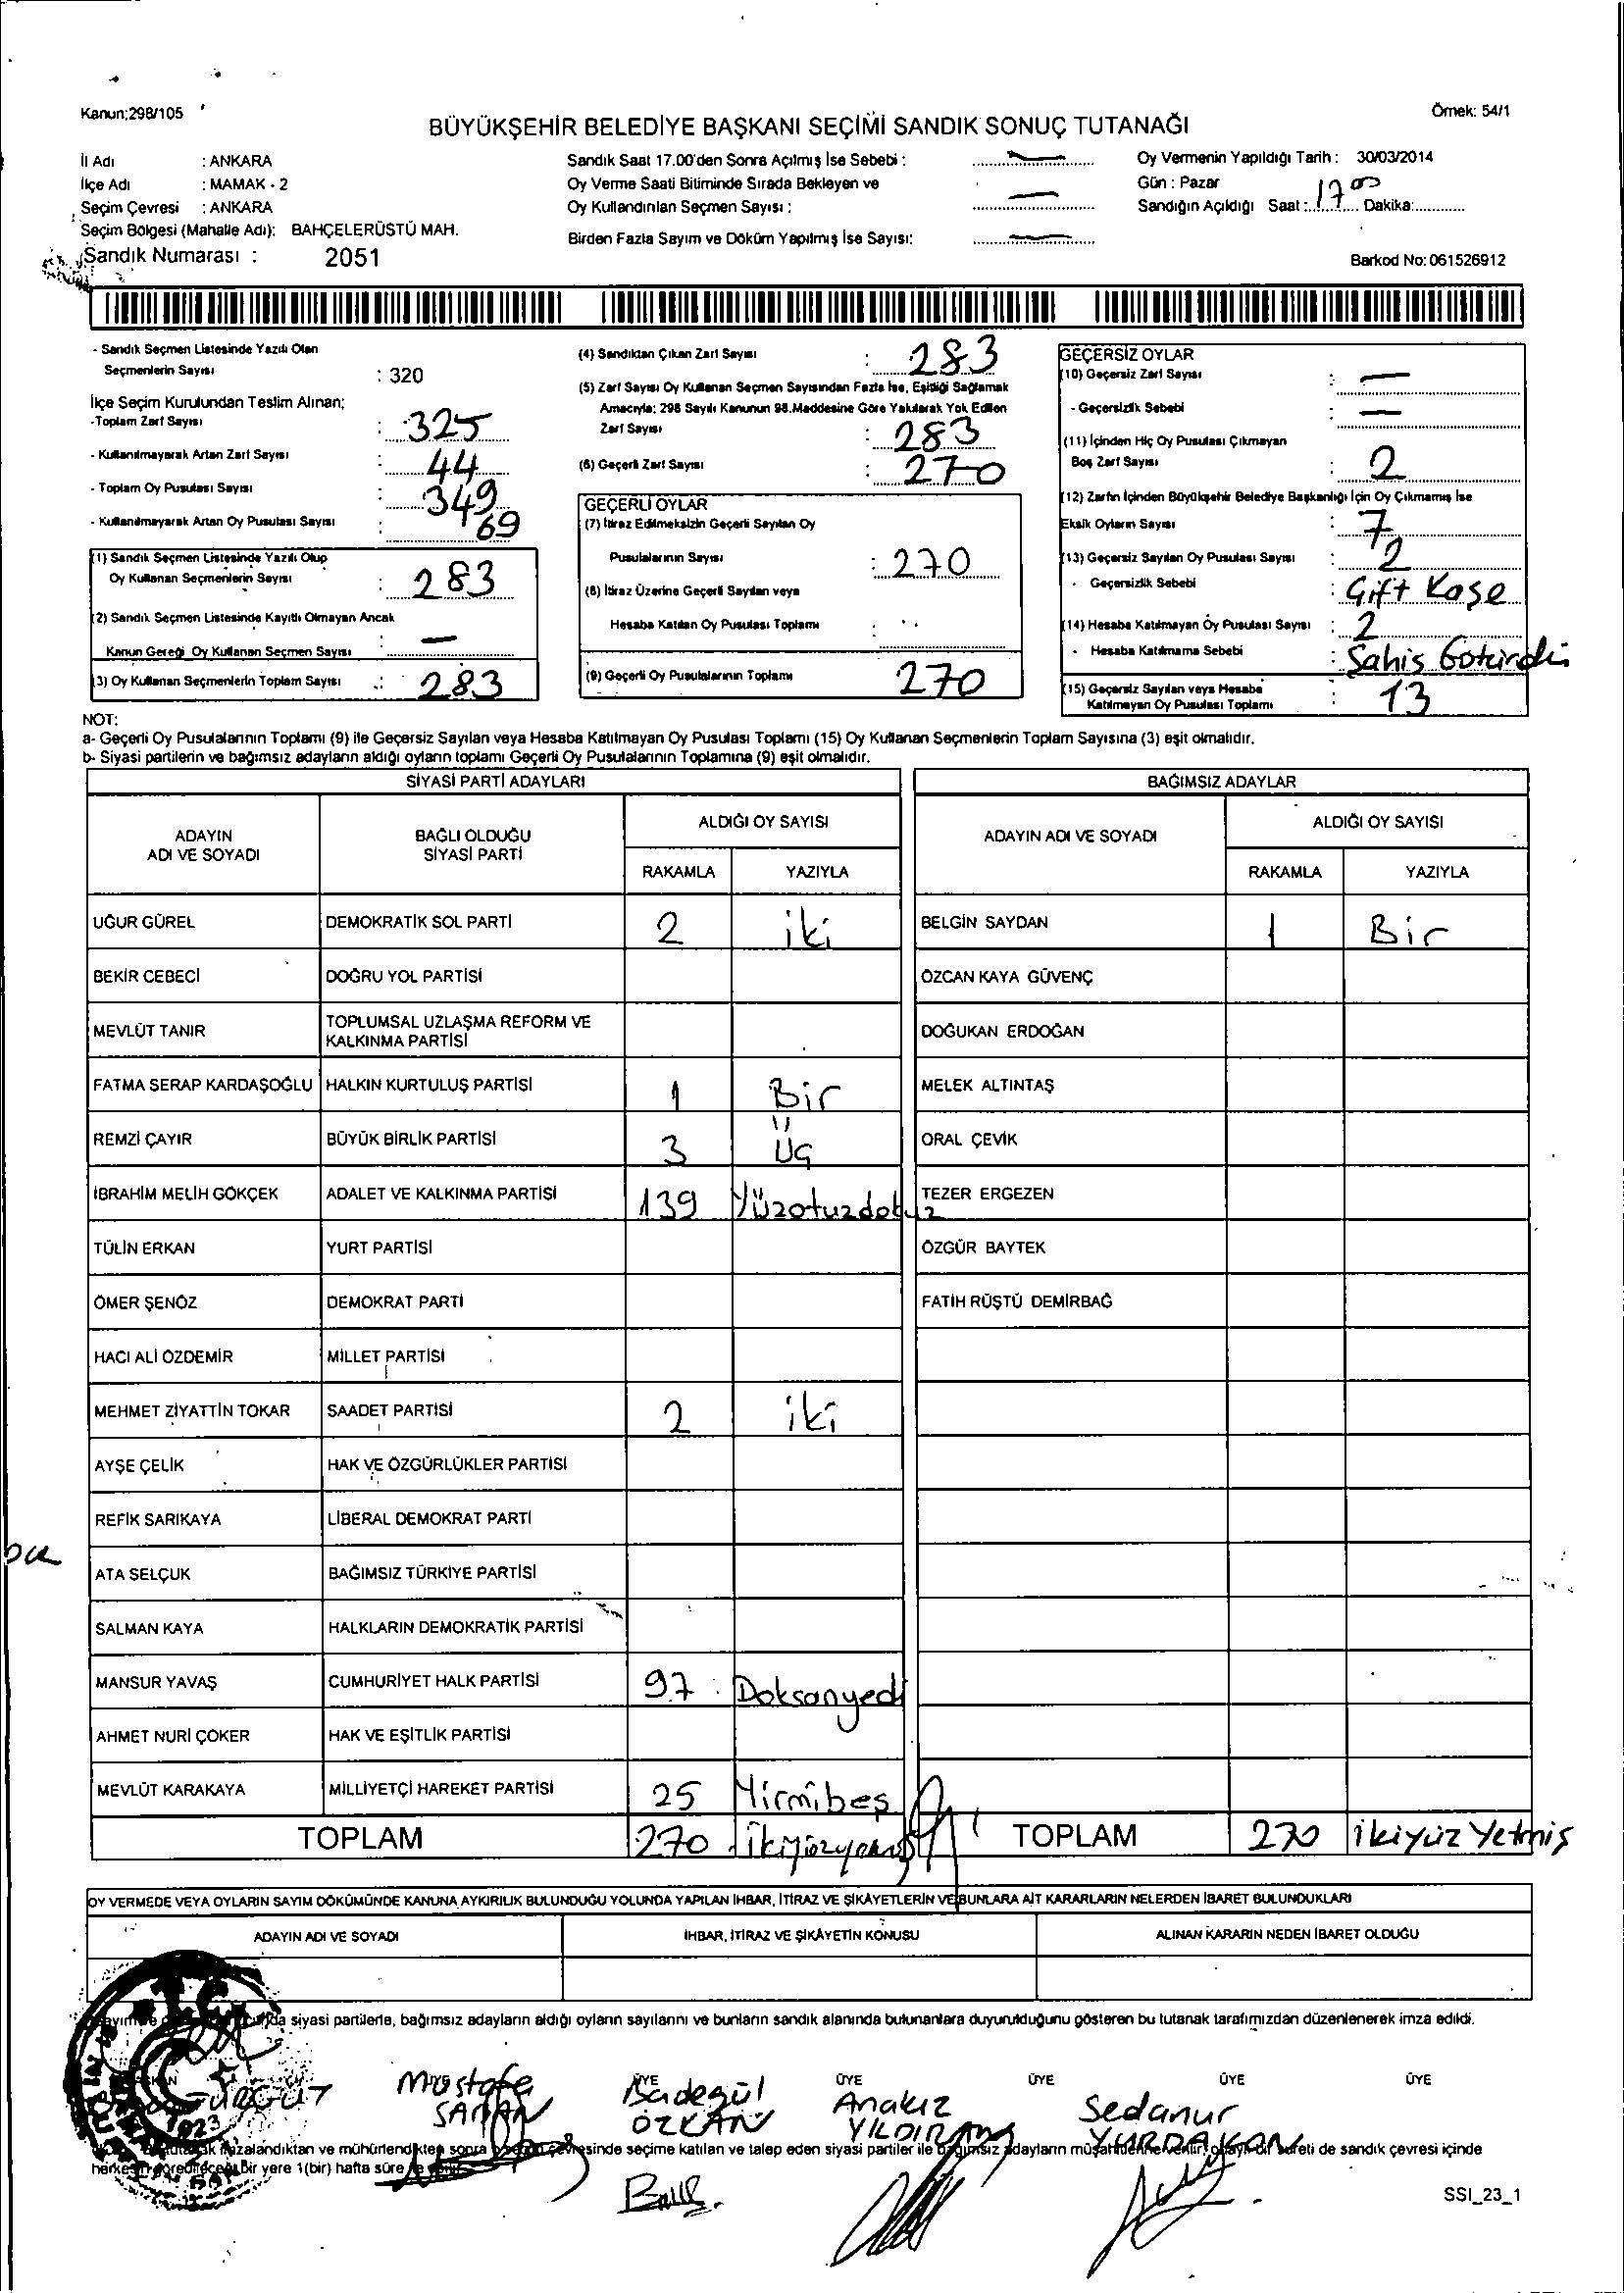 Kanun;298/105
Örnek: 54/1
BÜYÜKŞEHİR BELEDİYE BAŞKANI SEÇİMİ SANDIK SONUÇ TUTANAĞI
İl Adı : ANKARA
İlçe Adı : MAMAK - 2
Seçim Çevresi : ANKARA
Seçim Bölgesi (Mahalle Adı): BAHÇELERÜSTÜ MAH.
Sandık Numarası : 2051
Sandık Saat 17.00'den Sonra Açılmış İse Sebebi :
Oy Verme Saati Bitiminde Sırada Bekleyen ve
Oy Kullandırılan Seçmen Sayısı :
Birden Fazla Sayım ve Döküm Yapılmış İse Sayısı:
Oy Vermenin Yapıldığı Tarih : 30/03/2014
Gün : Pazar
Sandığın Açıldığı Saat : 17 00 Dakika:
Barkod No: 061526912
- Sandık Seçmen Listesinde Yazılı Olan
Seçmenlerin Sayısı : 320
İlçe Seçim Kurulundan Teslim Alınan;
-Toplam Zarf Sayısı : 325
- Kullanılmayarak Artan Zarf Sayısı : 44
- Toplam Oy Pusulası Sayısı : 349
- Kullanılmayarak Artan Oy Pusulası Sayısı : 69
(1) Sandık Seçmen Listesinde Yazılı Olup
Oy Kullanan Seçmenlerin Sayısı : 283
(2) Sandık Seçmen Listesinde Kayıtlı Olmayan Ancak
Kanun Gereği Oy Kullanan Seçmen Sayısı : —
(3) Oy Kullanan Seçmenlerin Toplam Sayısı : 283
(4) Sandıktan Çıkan Zarf Sayısı : 283
(5) Zarf Sayısı Oy Kullanan Seçmen Sayısından Fazla İse, Eşitliği Sağlamak
Amacıyla; 298 Sayılı Kanunun 98.Maddesine Göre Yakılarak Yok Edilen
Zarf Sayısı : 283
(6) Geçerli Zarf Sayısı : 270
GEÇERLİ OYLAR
(7) İtiraz Edilmeksizin Geçerli Sayılan Oy
Pusulalarının Sayısı : 270
(8) İtiraz Üzerine Geçerli Sayılan veya
Hesaba Katılan Oy Pusulası Toplamı :
(9) Geçerli Oy Pusulalarının Toplamı 270
GEÇERSİZ OYLAR
(10) Geçersiz Zarf Sayısı : —
- Geçersizlik Sebebi : —
(11) İçinden Hiç Oy Pusulası Çıkmayan
Boş Zarf Sayısı : 2
(12) Zarfın İçinden Büyükşehir Belediye Başkanlığı İçin Oy Çıkmamış İse
Eksik Oyların Sayısı : 7
(13) Geçersiz Sayılan Oy Pusulası Sayısı : 2
- Geçersizlik Sebebi : Çift Kaşe
(14) Hesaba Katılmayan Oy Pusulası Sayısı : 2
- Hesaba Katılmama Sebebi : Sahis Götürdü
(15) Geçersiz Sayılan veya Hesaba
Katılmayan Oy Pusulası Toplamı : 13
NOT:
a- Geçerli Oy Pusulalarının Toplamı (9) ile Geçersiz Sayılan veya Hesaba Katılmayan Oy Pusulası Toplamı (15) Oy Kullanan Seçmenlerin Toplam Sayısına (3) eşit olmalıdır.
b- Siyasi partilerin ve bağımsız adayların aldığı oyların toplamı Geçerli Oy Pusulalarının Toplamına (9) eşit olmalıdır.
SİYASİ PARTİ ADAYLARI
BAĞIMSIZ ADAYLAR
ADAYIN ADI VE SOYADI BAĞLI OLDUĞU SİYASİ PARTİ ALDIĞI OY SAYISI RAKAMLA YAZIYLA
ADAYIN ADI VE SOYADI ALDIĞI OY SAYISI RAKAMLA YAZIYLA
UĞUR GÜREL DEMOKRATİK SOL PARTİ 2 iki BELGİN SAYDAN 1 Bir
BEKİR CEBECİ DOĞRU YOL PARTİSİ ÖZCAN KAYA GÜVENÇ
MEVLÜT TANIR TOPLUMSAL UZLAŞMA REFORM VE KALKINMA PARTİSİ DOĞUKAN ERDOĞAN
FATMA SERAP KARDAŞOĞLU HALKIN KURTULUŞ PARTİSİ 1 Bir MELEK ALTINTAŞ
REMZİ ÇAYIR BÜYÜK BİRLİK PARTİSİ 3 Üç ORAL ÇEVİK
İBRAHİM MELİH GÖKÇEK ADALET VE KALKINMA PARTİSİ 139 Yüzotuzdokuz TEZER ERGEZEN
TÜLİN ERKAN YURT PARTİSİ ÖZGÜR BAYTEK
ÖMER ŞENÖZ DEMOKRAT PARTİ FATİH RÜŞTÜ DEMİRBAĞ
HACI ALİ ÖZDEMİR MİLLET PARTİSİ
MEHMET ZİYATTİN TOKAR SAADET PARTİSİ 2 iki
AYŞE ÇELİK HAK VE ÖZGÜRLÜKLER PARTİSİ
REFİK SARIKAYA LİBERAL DEMOKRAT PARTİ
ATA SELÇUK BAĞIMSIZ TÜRKİYE PARTİSİ
SALMAN KAYA HALKLARIN DEMOKRATİK PARTİSİ
MANSUR YAVAŞ CUMHURİYET HALK PARTİSİ 97 Doksanyedi
AHMET NURİ ÇOKER HAK VE EŞİTLİK PARTİSİ
MEVLÜT KARAKAYA MİLLİYETÇİ HAREKET PARTİSİ 25 Yirmibeş
TOPLAM 270 TOPLAM 270 ikiyüz Yetmiş
OY VERMEDE VEYA OYLARIN SAYIM DÖKÜMÜNDE KANUNA AYKIRILIK BULUNDUĞU YOLUNDA YAPILAN İHBAR, İTİRAZ VE ŞİKÂYETLERİN VE BUNLARA AİT KARARLARIN NELERDEN İBARET BULUNDUKLARI
ADAYIN ADI VE SOYADI İHBAR, İTİRAZ VE ŞİKÂYETİN KONUSU ALINAN KARARIN NEDEN İBARET OLDUĞU
siyasi partilerle, bağımsız adayların aldığı oyların sayılarını ve bunların sandık alanında bulunanlara duyurulduğunu gösteren bu tutanak tarafımızdan düzenlenerek imza edildi.
ÜYE ÜYE ÜYE ÜYE ÜYE
Mustafa Badegül Anakız Sedanur
ÖZKAN YILDIRIM YURDAKAN
imzalandıktan ve mühürlendikten sonra çevresinde seçime katılan ve talep eden siyasi partiler ile bağımsız adayların de sandık çevresi içinde
bir yere 1(bir) hafta süre
SSI_23_1